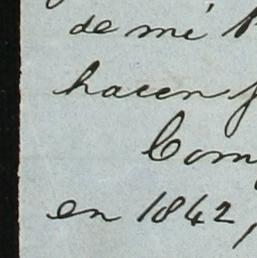 de mi
hacen
Com
en 1842,